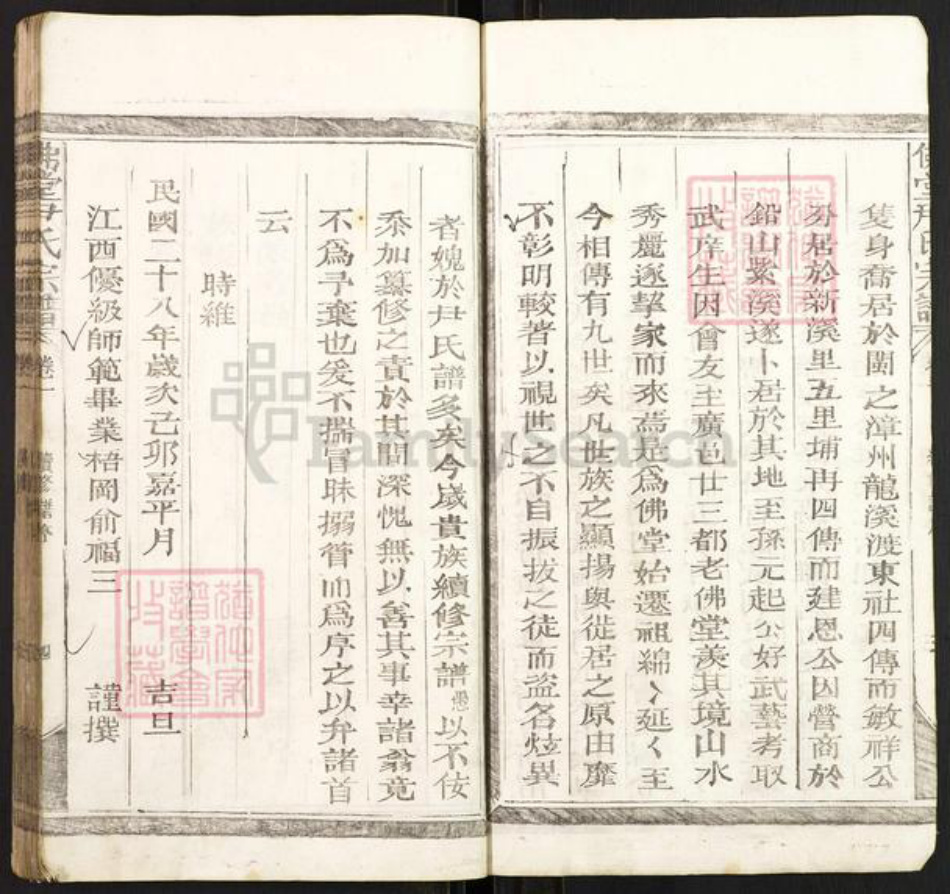 隻身喬居於閩之漳州龍溪渡東社四傳而敏祥公
居於新溪里五里埔再四傳而建恩公因營商於
鉛山紫溪遂卜居於其地至孫元起公好武藝考取
武庠生因會友至廣邑廿三都老佛堂羨其境山水
秀麗遂挈家而來焉是爲佛堂始遷祖綿〻延〻至
今相傳有九世矣凡世族之顯揚與從居之原由靡
不彰明較著以視世之不自振拔之徒而盜名炫異
者媿於尹氏譜多矣今歲貴族續修宗譜愚以不佞
忝加纂修之責於其間深愧無以善其事幸諸翁竟
不爲予棄也爰不揣冒昧搦管而爲序之以弁諸首
云
時維
民國二十八年歲次己卯嘉平月 吉旦
江西優級師範畢業梧岡俞福三 謹撰
佛堂尹氏宗譜 卷一
FamilySearch